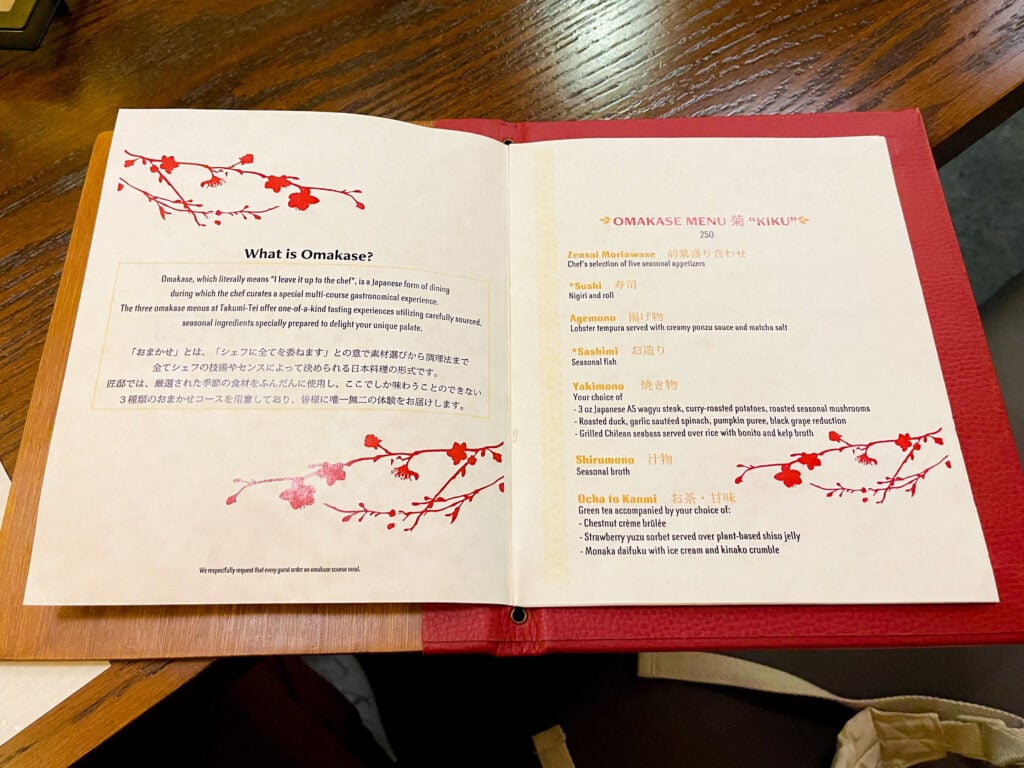 What is Omakase?
Omakase, which literally means "I leave it up to the chef", is a Japanese form of dining
during which the chef curates a special multi-course gastronomical experience.
The three omakase menus at Takumi-Tei offer one-of-a-kind tasting experiences utilizing carefully sourced,
seasonal ingredients specially prepared to delight your unique palate.
「おまかせ」とは、「シェフに全てを委ねます」との意で素材選びから調理法まで
全てシェフの技術やセンスによって決められる日本料理の形式です。
匠邸では、厳選された季節の食材をふんだんに使用し、ここでしか味わうことのできない
3種類のおまかせコースを用意しており、皆様に唯一無二の体験をお届けします。
We respectfully request that every guest order an omakase course meal.
OMAKASE MENU 菊 "KIKU"
250
Zensai Moriawase 前菜盛り合わせ
Chef's selection of five seasonal appetizers
*Sushi 寿司
Nigiri and roll
Agemono 揚げ物
Lobster tempura served with creamy ponzu sauce and matcha salt
*Sashimi お造り
Seasonal fish
Yakimono 焼き物
Your choice of
- 3 oz Japanese A5 wagyu steak, curry-roasted potatoes, roasted seasonal mushrooms
- Roasted duck, garlic sautéed spinach, pumpkin puree, black grape reduction
- Grilled Chilean seabass served over rice with bonito and kelp broth
Shirumono 汁物
Seasonal broth
Ocha to Kanmi お茶・甘味
Green tea accompanied by your choice of:
- Chestnut crème brûlée
- Strawberry yuzu sorbet served over plant-based shiso jelly
- Monaka daifuku with ice cream and kinako crumble